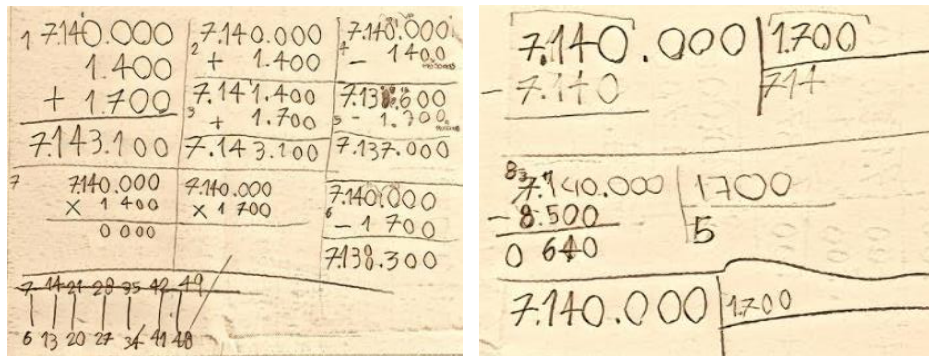 1 7.140.000
1.400
+ 1.700
7.143.100
7.140.000
2 + 1.400
7.141.400
3 + 1.700
7.143.100
7.140.000
4 - 1400
7.138.600
5 - 1.700
7.137.000
7 7140.000
X 1 400
0 000
7.140.000
X 1 700
7.140.000
6 - 1 700
7.138.300
7 14 21 28 35 42 49
6 13 20 27 34 41 48
7.140.000 1.700
- 7.140 714
7.140.000 1700
- 8.500 5
0 640
7.140.000 1.700